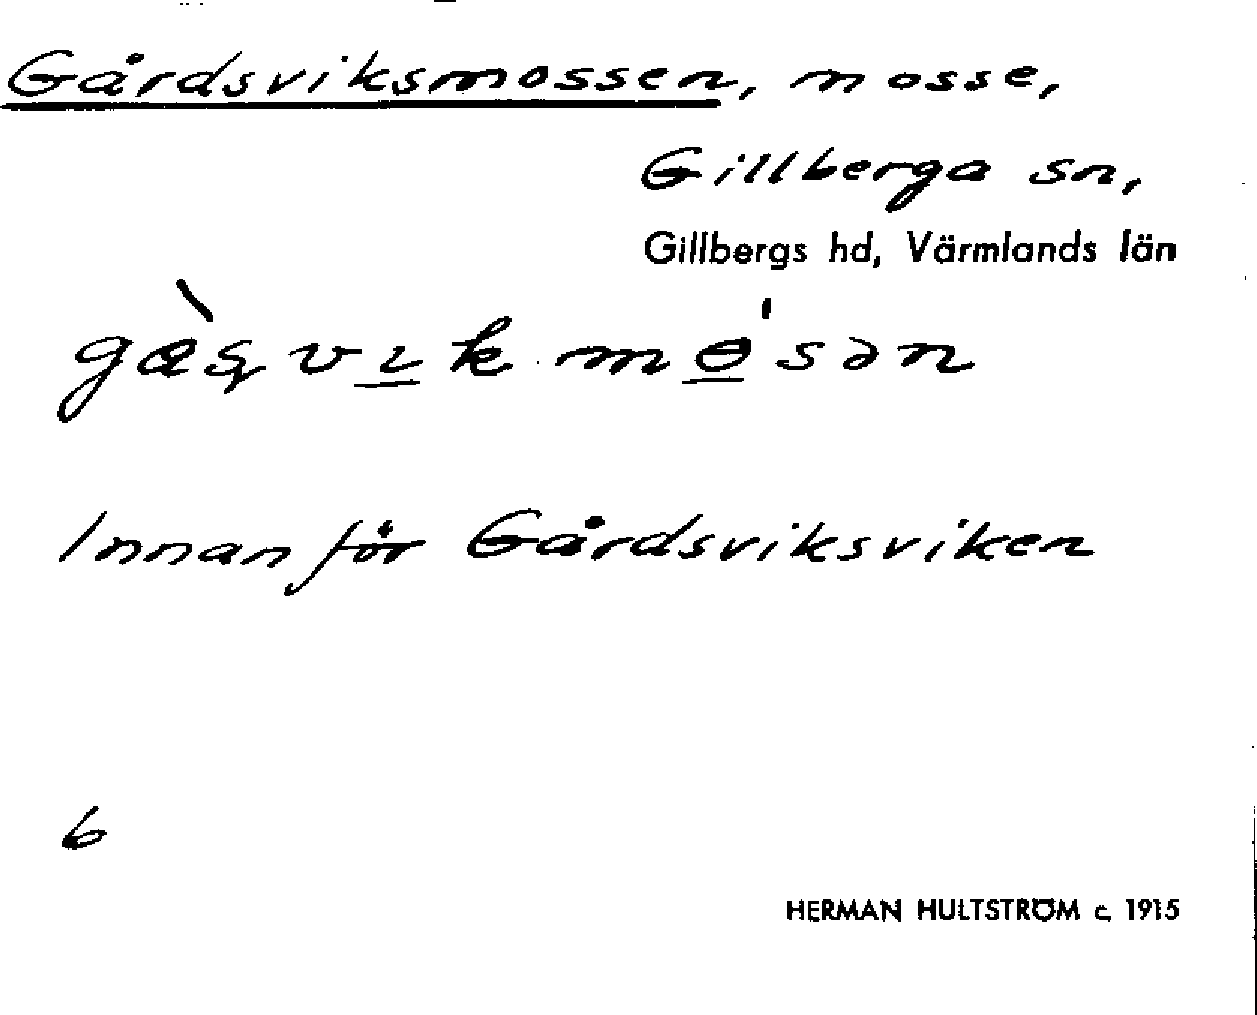 Gårdsviksmossen, mosse,
Gillberga sn,
Gillbergs hd, Värmlands län
Innanför Gårdsviksviken
6
HERMAN HULTSTRÖM c. 1915